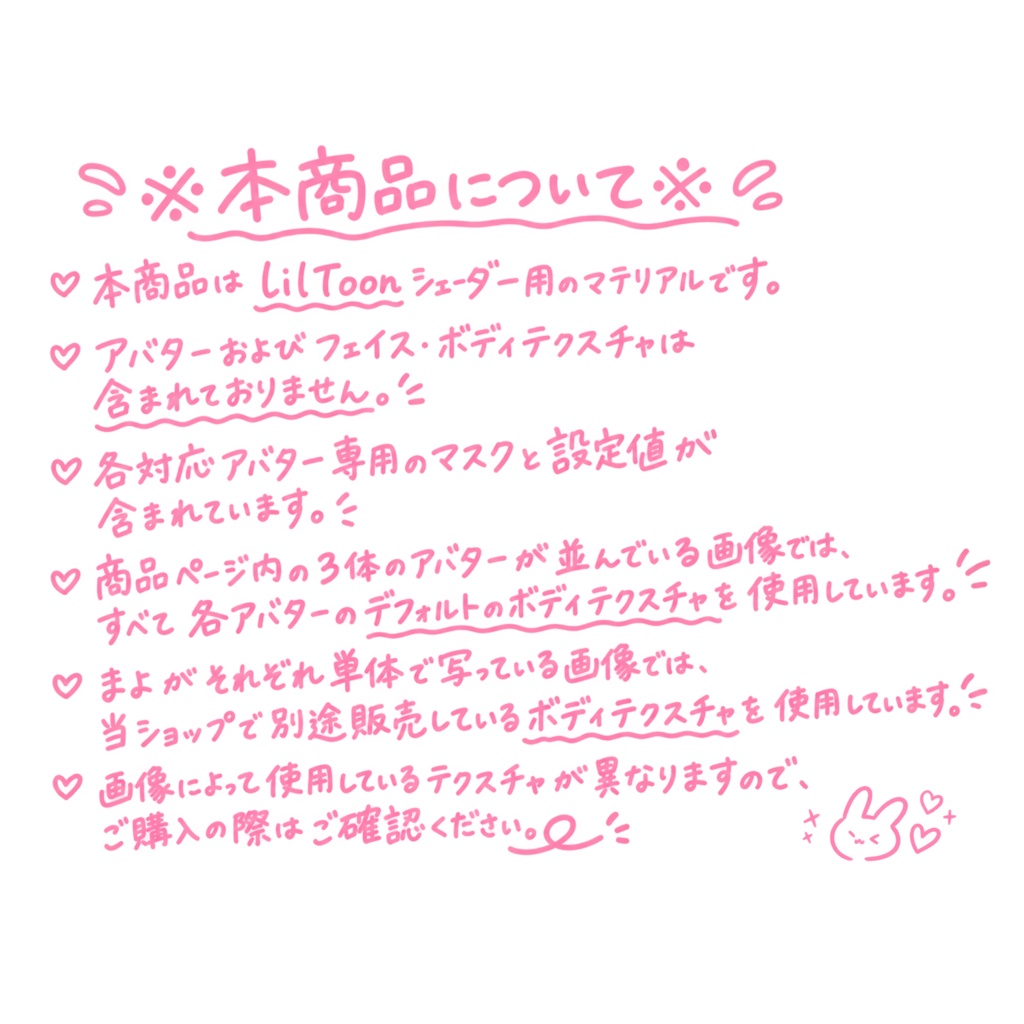 ※本商品について※
♡本商品は LilToon シェーダー用のマテリアルです。
♡アバターおよび フェイス・ボディテクスチャは
含まれておりません。
♡各対応アバター専用のマスクと設定値が
含まれています。
♡商品ページ内の3体のアバターが並んでいる画像では、
すべて各アバターのデフォルトのボディテクスチャを使用しています。
♡まよがそれぞれ単体で写っている画像では、
当ショップで別途販売しているボディテクスチャを使用しています。
♡画像によって使用しているテクスチャが異なりますので、
ご購入の際はご確認ください。